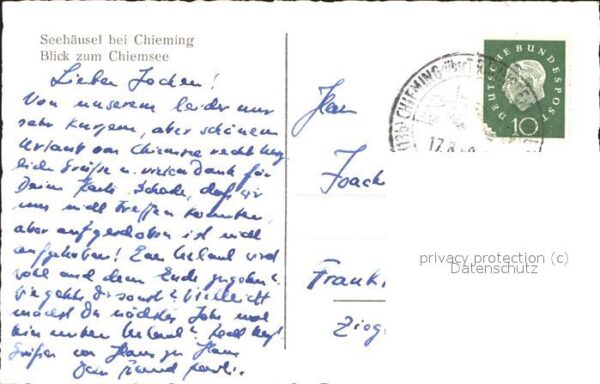 Seehäusel bei Chieming
Blick zum Chiemsee
Lieber Jochen!
Von unserem leider nur
sehr kurzem, aber schönen
Urlaub am Chiemsee recht herz
liche Grüße u. vielen Dank für
Deine Karte. Schade, daß wir
uns nicht treffen konnten,
aber aufgeschoben ist nicht
aufgehoben! Euer Urlaub wird
wohl auch dem Ende zugehen?
Wie gehts Dir sonst? Vielleicht
machst Du nächstes Jahr mal
hier unten Urlaub? Recht herzl.
Grüßen von Haus zu Haus
Dein Freund
Herrn
Joach
Frank
DEUTSCHE BUNDESPOST
10
(13b) CHIEMING über TRAUNSTEIN
17.8.
privacy protection (c)
Datenschutz